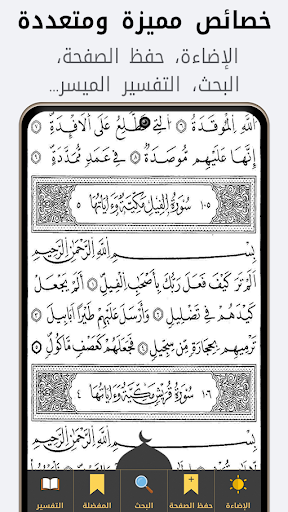 خصائص مميزة ومتعددة
الإضاءة، حفظ الصفحة،
البحث، التفسير الميسر...
اللَّهِ الْمُوقَدَةُ ۝ الَّتِي تَطَّلِعُ عَلَى الْأَفْئِدَةِ ۝
إِنَّهَا عَلَيْهِم مُّؤْصَدَةٌ ۝ فِي عَمَدٍ مُّمَدَّدَةٍ ۝
١٠٥ سُورَةُ الْفِيلِ مَكِّيَّةٌ وَءَايَاتُهَا ٥
بِسْمِ اللَّهِ الرَّحْمَٰنِ الرَّحِيمِ
أَلَمْ تَرَ كَيْفَ فَعَلَ رَبُّكَ بِأَصْحَابِ الْفِيلِ ۝ أَلَمْ يَجْعَلْ
كَيْدَهُمْ فِي تَضْلِيلٍ ۝ وَأَرْسَلَ عَلَيْهِمْ طَيْرًا أَبَابِيلَ ۝
تَرْمِيهِم بِحِجَارَةٍ مِّن سِجِّيلٍ ۝ فَجَعَلَهُمْ كَعَصْفٍ مَّأْكُولٍ ۝
١٠٦ سُورَةُ قُرَيْشٍ مَكِّيَّةٌ وَءَايَاتُهَا ٤
بِسْمِ اللَّهِ الرَّحْمَٰنِ الرَّحِيمِ
الإضاءة
حفظ الصفحة
البحث
المفضلة
التفسير